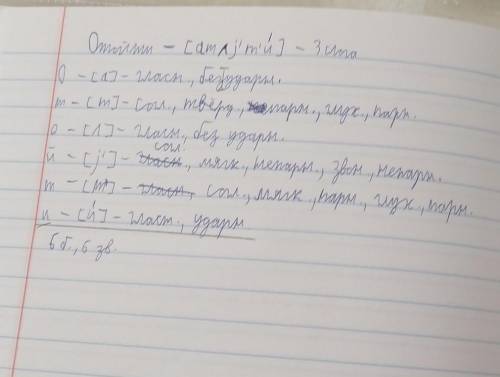 Отойти – [атʌj'т'и́] – 3 слога
О – [а] – гласн., без ударн.
т – [т] – согл., тверд., парн., глух., парн.
о – [ʌ] – гласн., без ударн.
й – [j'] – согл., мягк., непарн., звон., непарн.
т – [т'] – согл., мягк., парн., глух., парн.
и – [и́] – гласн., ударн
6 б., 6 зв.